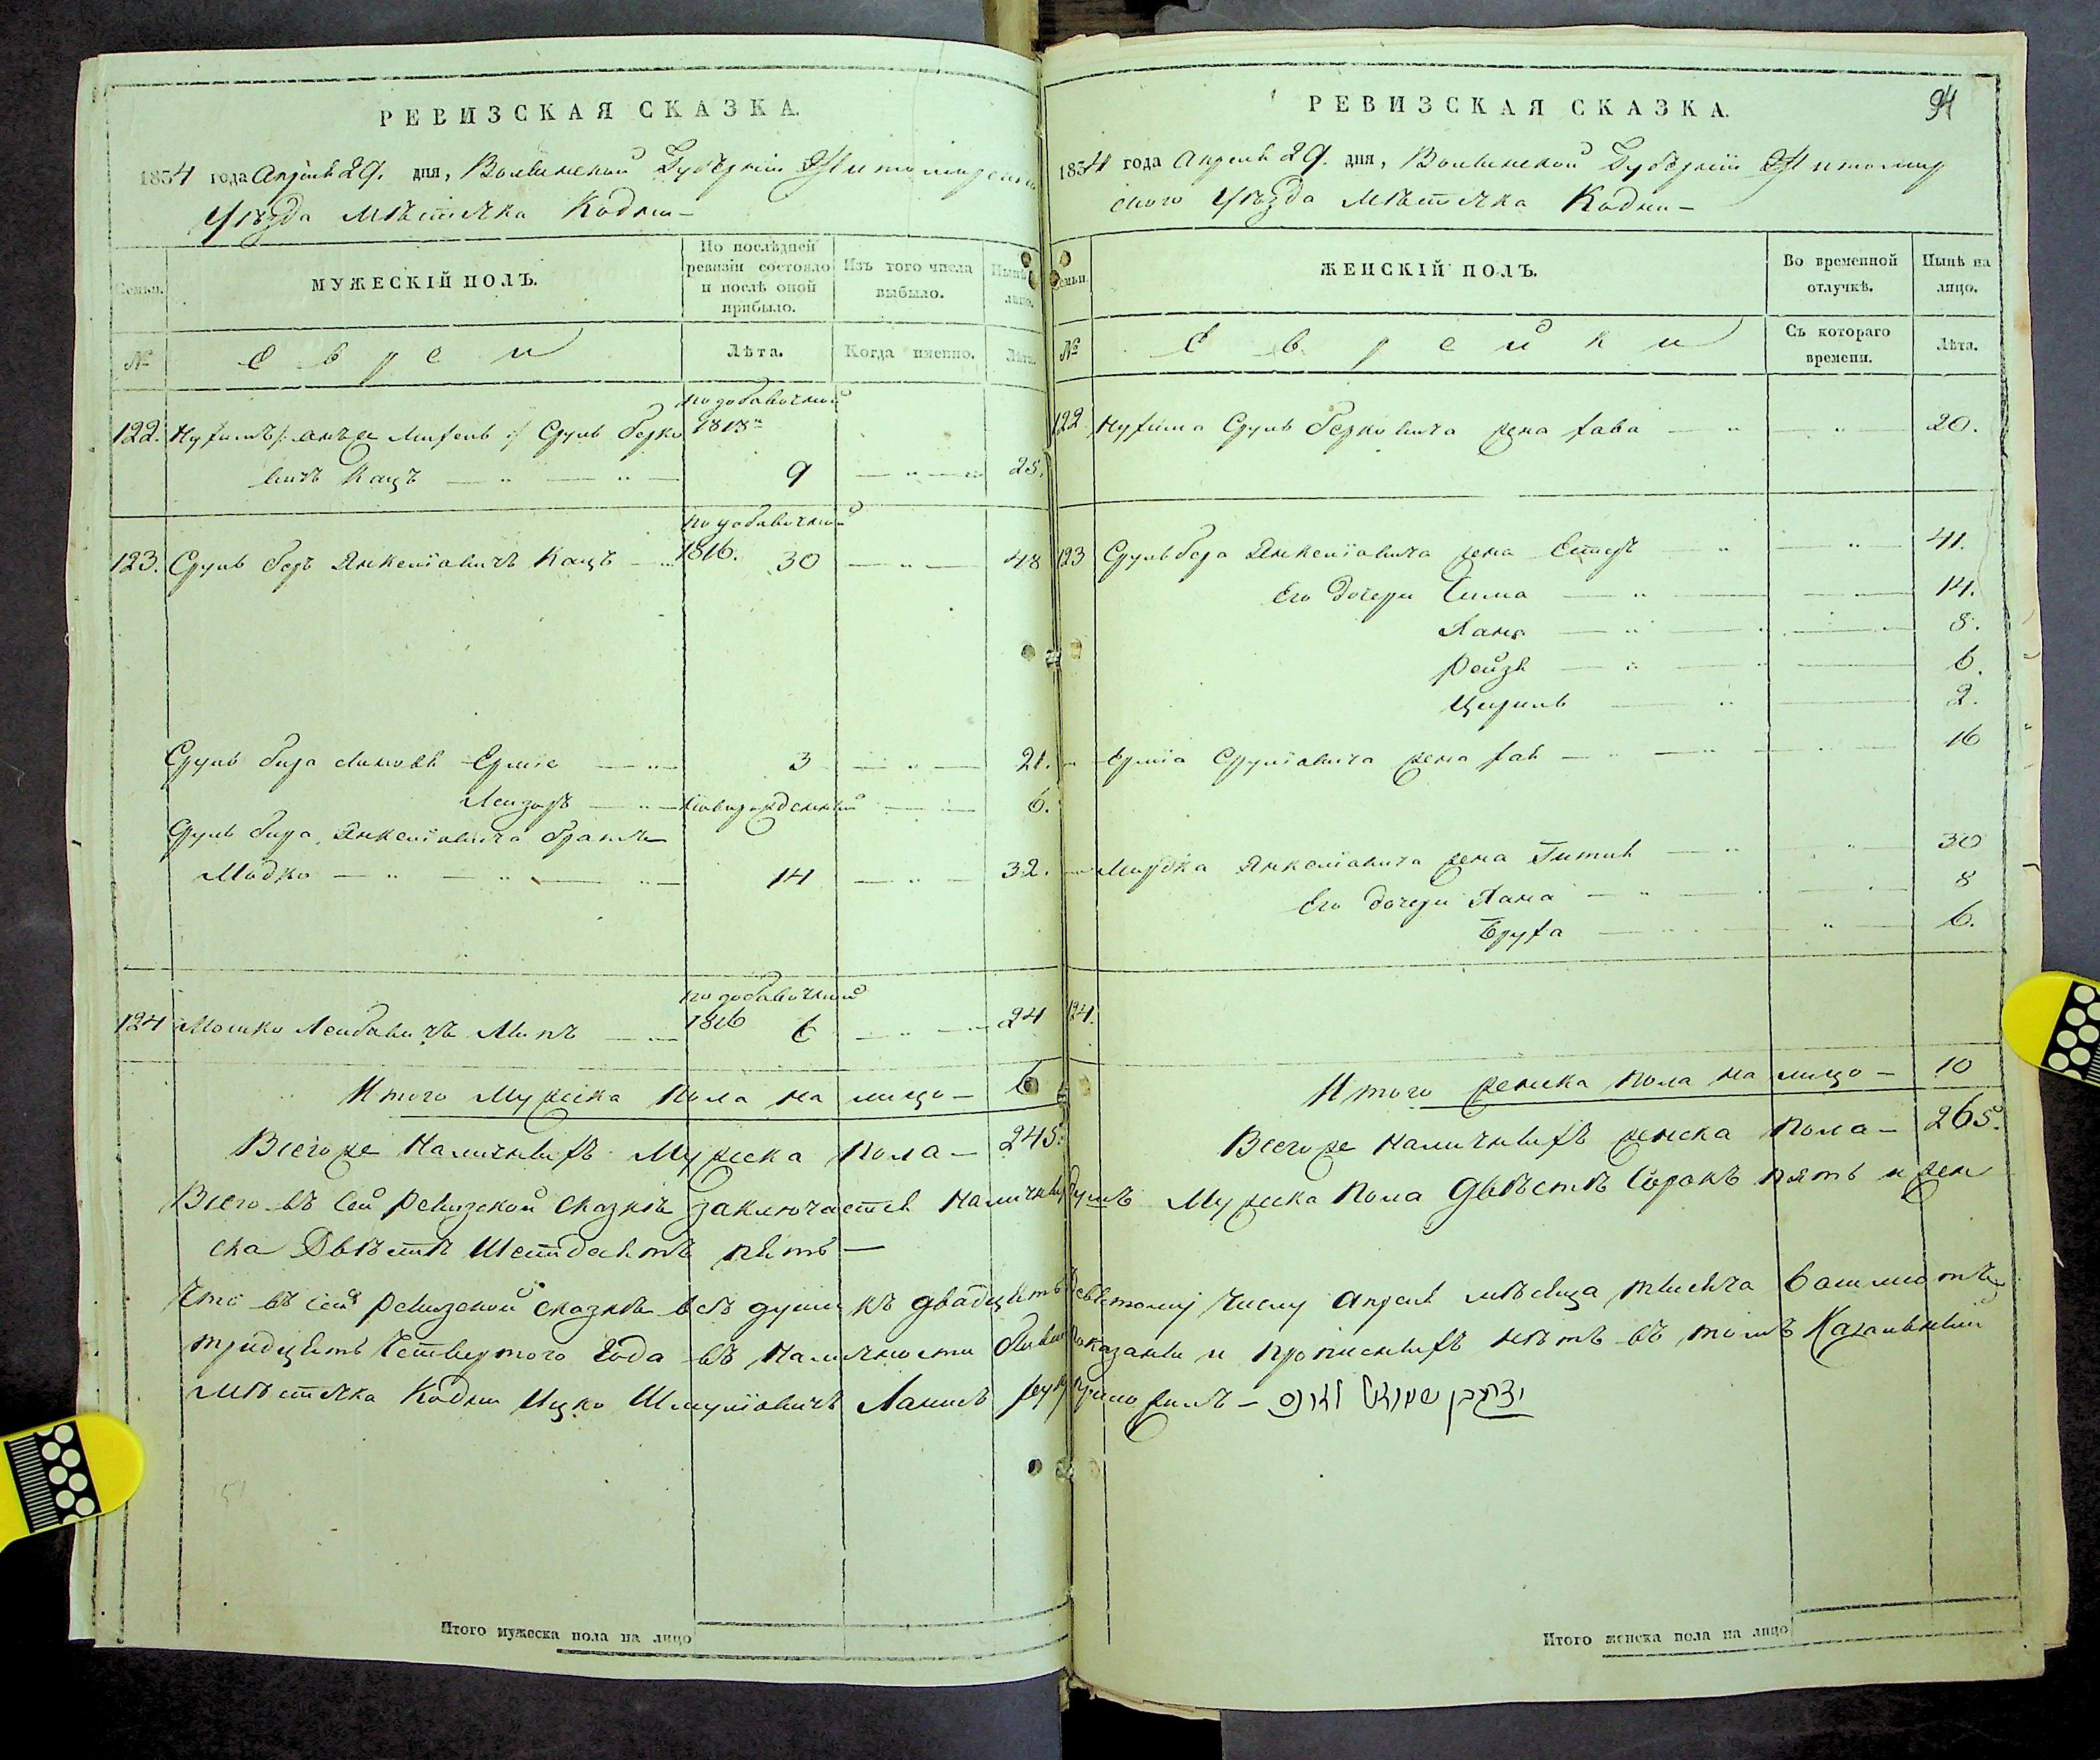 РЕВИЗСКАЯ СКАЗКА.
1834 года Апреля 29. дня, Волынской Губерніи Житомирскаго
Уѣзда Мѣстечка Кодни –
Семьи.
МУЖЕСКІЙ ПОЛЪ.
По послѣдней ревизіи состояло и послѣ оной прибыло.
Изъ того числа выбыло.
Нынѣ на лицо.
№
Евреи
Лѣта.
Когда именно.
Лѣта.
по добавочной
122. Срулъ Берко 1818
вичъ Кацъ — " — " — 9 — " — 25.
по добавочной
123. Срулъ Беръ Янкеліовичъ Кацъ — " 1816. 30 — " — 48
Срулъ Бера сыновья Ермiе — " — 3 — " — 21.
Лейзоръ — " — Новорожденный — " — 6.
Срулъ Бера Янкеліовича братъ
Модко — " — " — " — 14 — " — 32.
по добавочной
124 Мошко Лейбовичъ — " — 1816 6 — " — 24
Итого Мужеска пола на лицо – 6
Всего же наличныхъ Мужеска пола – 245.
РЕВИЗСКАЯ СКАЗКА.
94
1834 года Апреля 29. дня, Волынской Губерніи Житомир
скаго Уѣзда Мѣстечка Кодни –
Семьи.
ЖЕНСКІЙ ПОЛЪ.
Во временной отлучкѣ.
Нынѣ на лицо.
№
Еврейки
Съ котораго времени.
Лѣта.
122 Нухима Срулъ Берковича жена Хава — " — " — 20.
123 Срулъ Бера Янкеліовича жена Естеръ — " — " — 41.
Его дочери Сима — " — 14.
Хана — " — 8.
Рейзя — " — 6.
Цирель — " — 2.
" Ермiя Срулiовича жена Хая — " — 16
Мордка Янкеліовича жена Гитля — " — 30
Его дочери Хана — " — 8
Бруха — " — 6.
124.
Итого женска пола на лицо – 10
Всего же наличныхъ женска пола – 265.
Всего въ сей ревизской сказкѣ заключается наличныхъ душъ Мужеска пола двѣстѣ сорокъ пять и жен
ска Двѣстѣ Шестдесятъ пять —
Что въ сей ревизской сказкѣ всѣ души къ двадцать девятому числу Апреля мѣсяца тысяча восемсотъ
тридцать Четвертого Года въ наличности бывшіе показаны и прописныхъ нѣтъ въ томъ Кагальный
Мѣстечка Кодни Ицко Шмуліовичъ руку приложилъ –
Итого мужеска пола на лицо
Итого женска пола на лицо